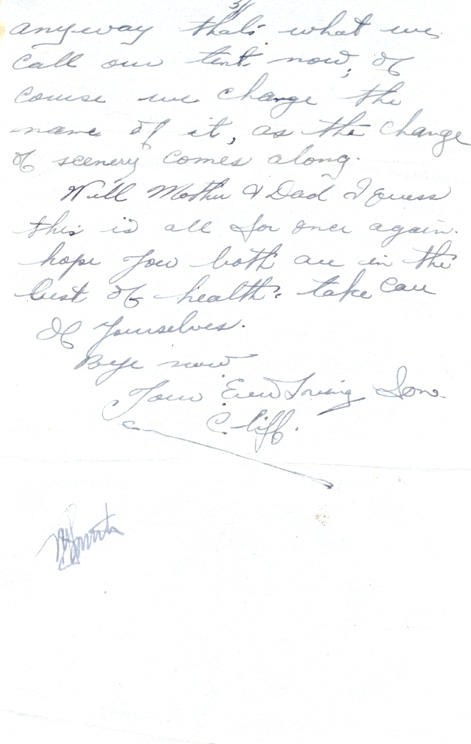 3/
anyway thats what we
call our tent now, of
course we change the
name of it, as the change
of scenery comes along.
Will Mother & Dad I guess
this is all for once again.
hope you both are in the
best of health. take care
of yourselves.
Bye now
Your Ever Loving Son.
Cliff.